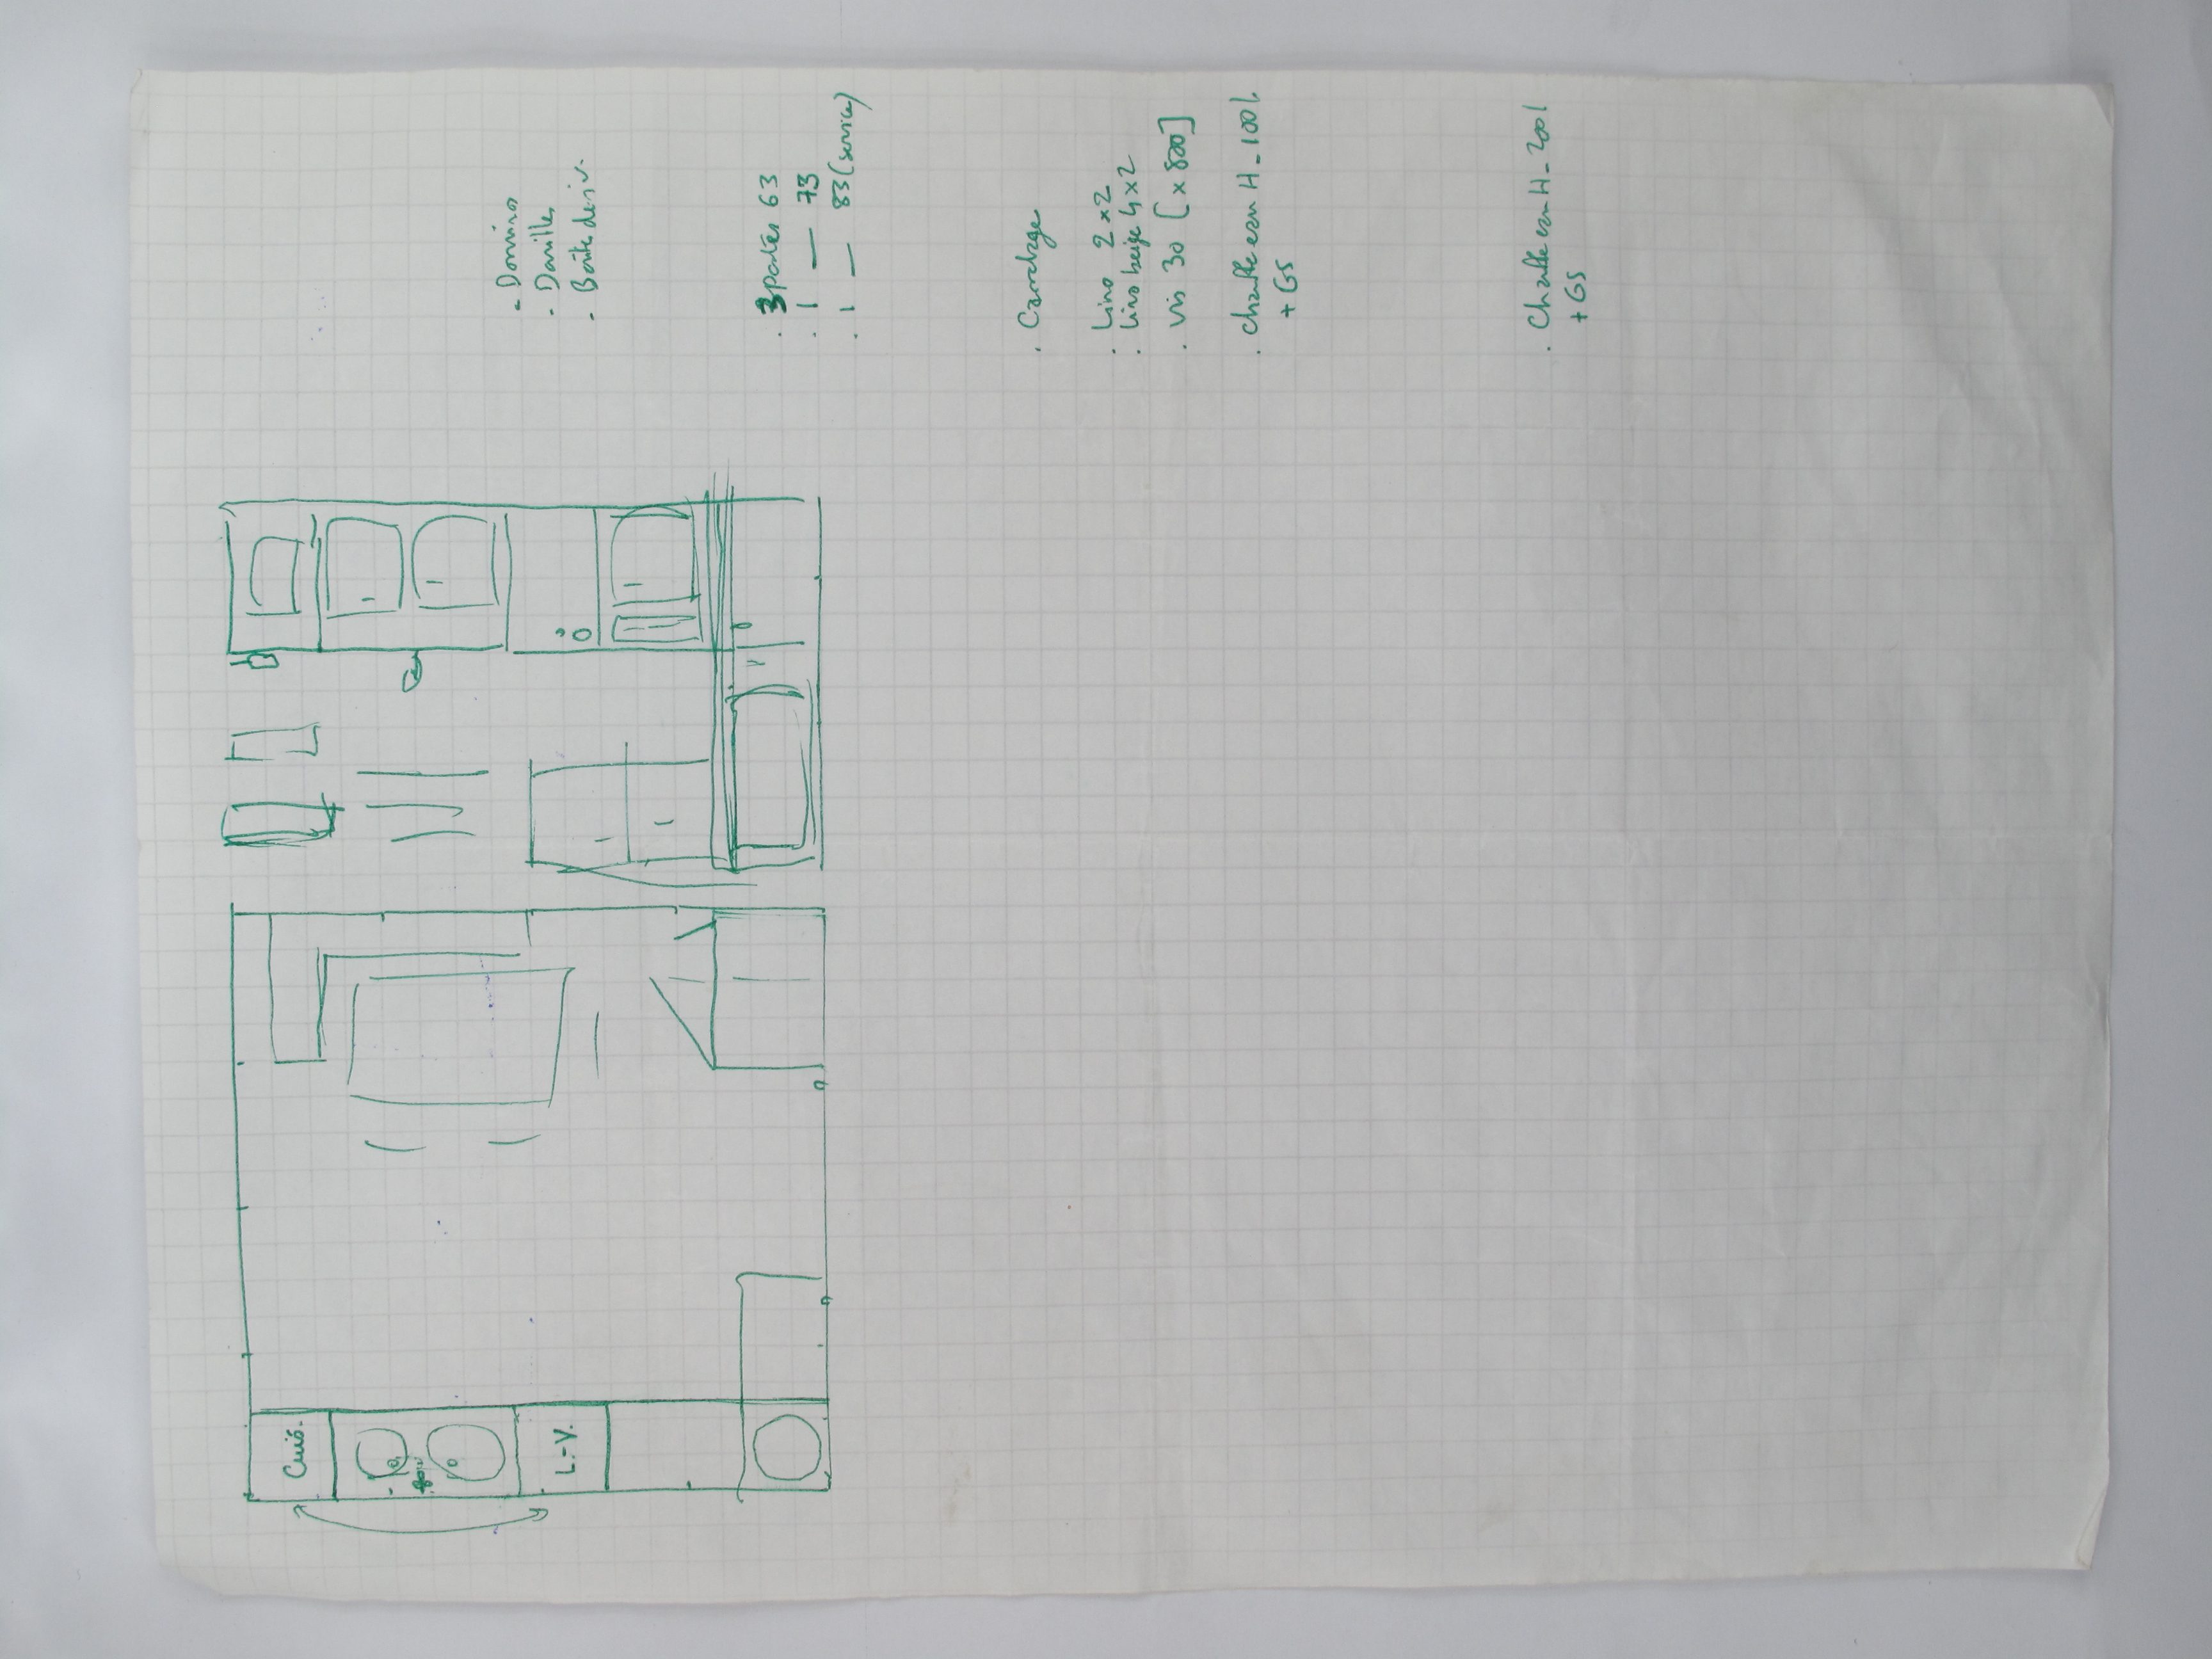 - Dominos
- Douilles
- Boîte deriv.
. 3 portes 63
. 1 — 73
. 1 — 83 (service)
. Carrelage
. Lino 2 x 2
. Lino beige 4 x 2
. vis 30 [x 800]
. Chauffe eau H - 100 l
+ GS
. Chauffe eau H - 200 l
+ GS
Cuis.
L.-V.